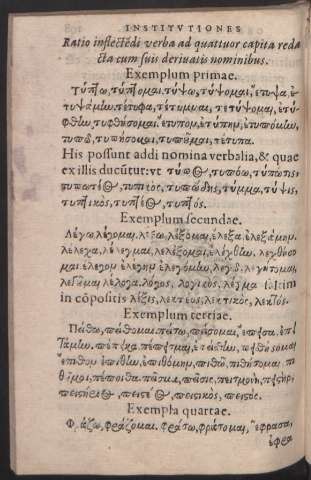 INSTITVTIONES
Ratio inflectēdi verba ad quattuor capita reda
cta cum suis deriuatis nominibus.
Exemplum primae.
τύπτω, τύπτομαι. τύψω, τύψομαι, ἔτυψα, ἐ-
τυψάμην. τέτυφα, τέτυμμαι, τετύψομαι, ἐτύ-
φθην, τυφθήσομαι. ἔτυπον, ἐτύπην, ἐτυπόμην,
τυπῶ, τυπήσομαι, τυποῦμαι, τέτυπα.
His possunt addi nomina verbalia, & quae
ex illis ducūtur: vt τύπος, τυπόω, τύπωσις,
τυπωτὸς, τυπώδης, τύμμα, τύψις,
τυπτικὸς, τυπτός.
Exemplum secundae.
Λέγω, λέγομαι. λέξω, λέξομαι, ἔλεξα, ἐλεξάμην.
λέλεχα, λέλεγμαι, λελέξομαι, ἐλέχθην, λεχθήσο
μαι ἔλεγον ἐλέγην ἐλεγόμην,
λέλογα. λόγος, λογικὸς, λέγμα
in cōpositis λέξις, λεκτέος, λεκτικὸς, λεκτός.
Exemplum tertiae.
Πείθω, πείθομαι. πείσω, πείσομαι, ἔπεισα,
πέπεικα, πέπεισμαι, ἐπείσθην,
ἔπιθον ἐπίθην, ἐπιθόμην,
πέποιθα. πεῖσμα, πεῖσις, πεισμονὴ,
πειστικὸς, πειστός.
Exempla quartae.
Φράζω, φράζομαι. ἔφρασα,
ἐφρα